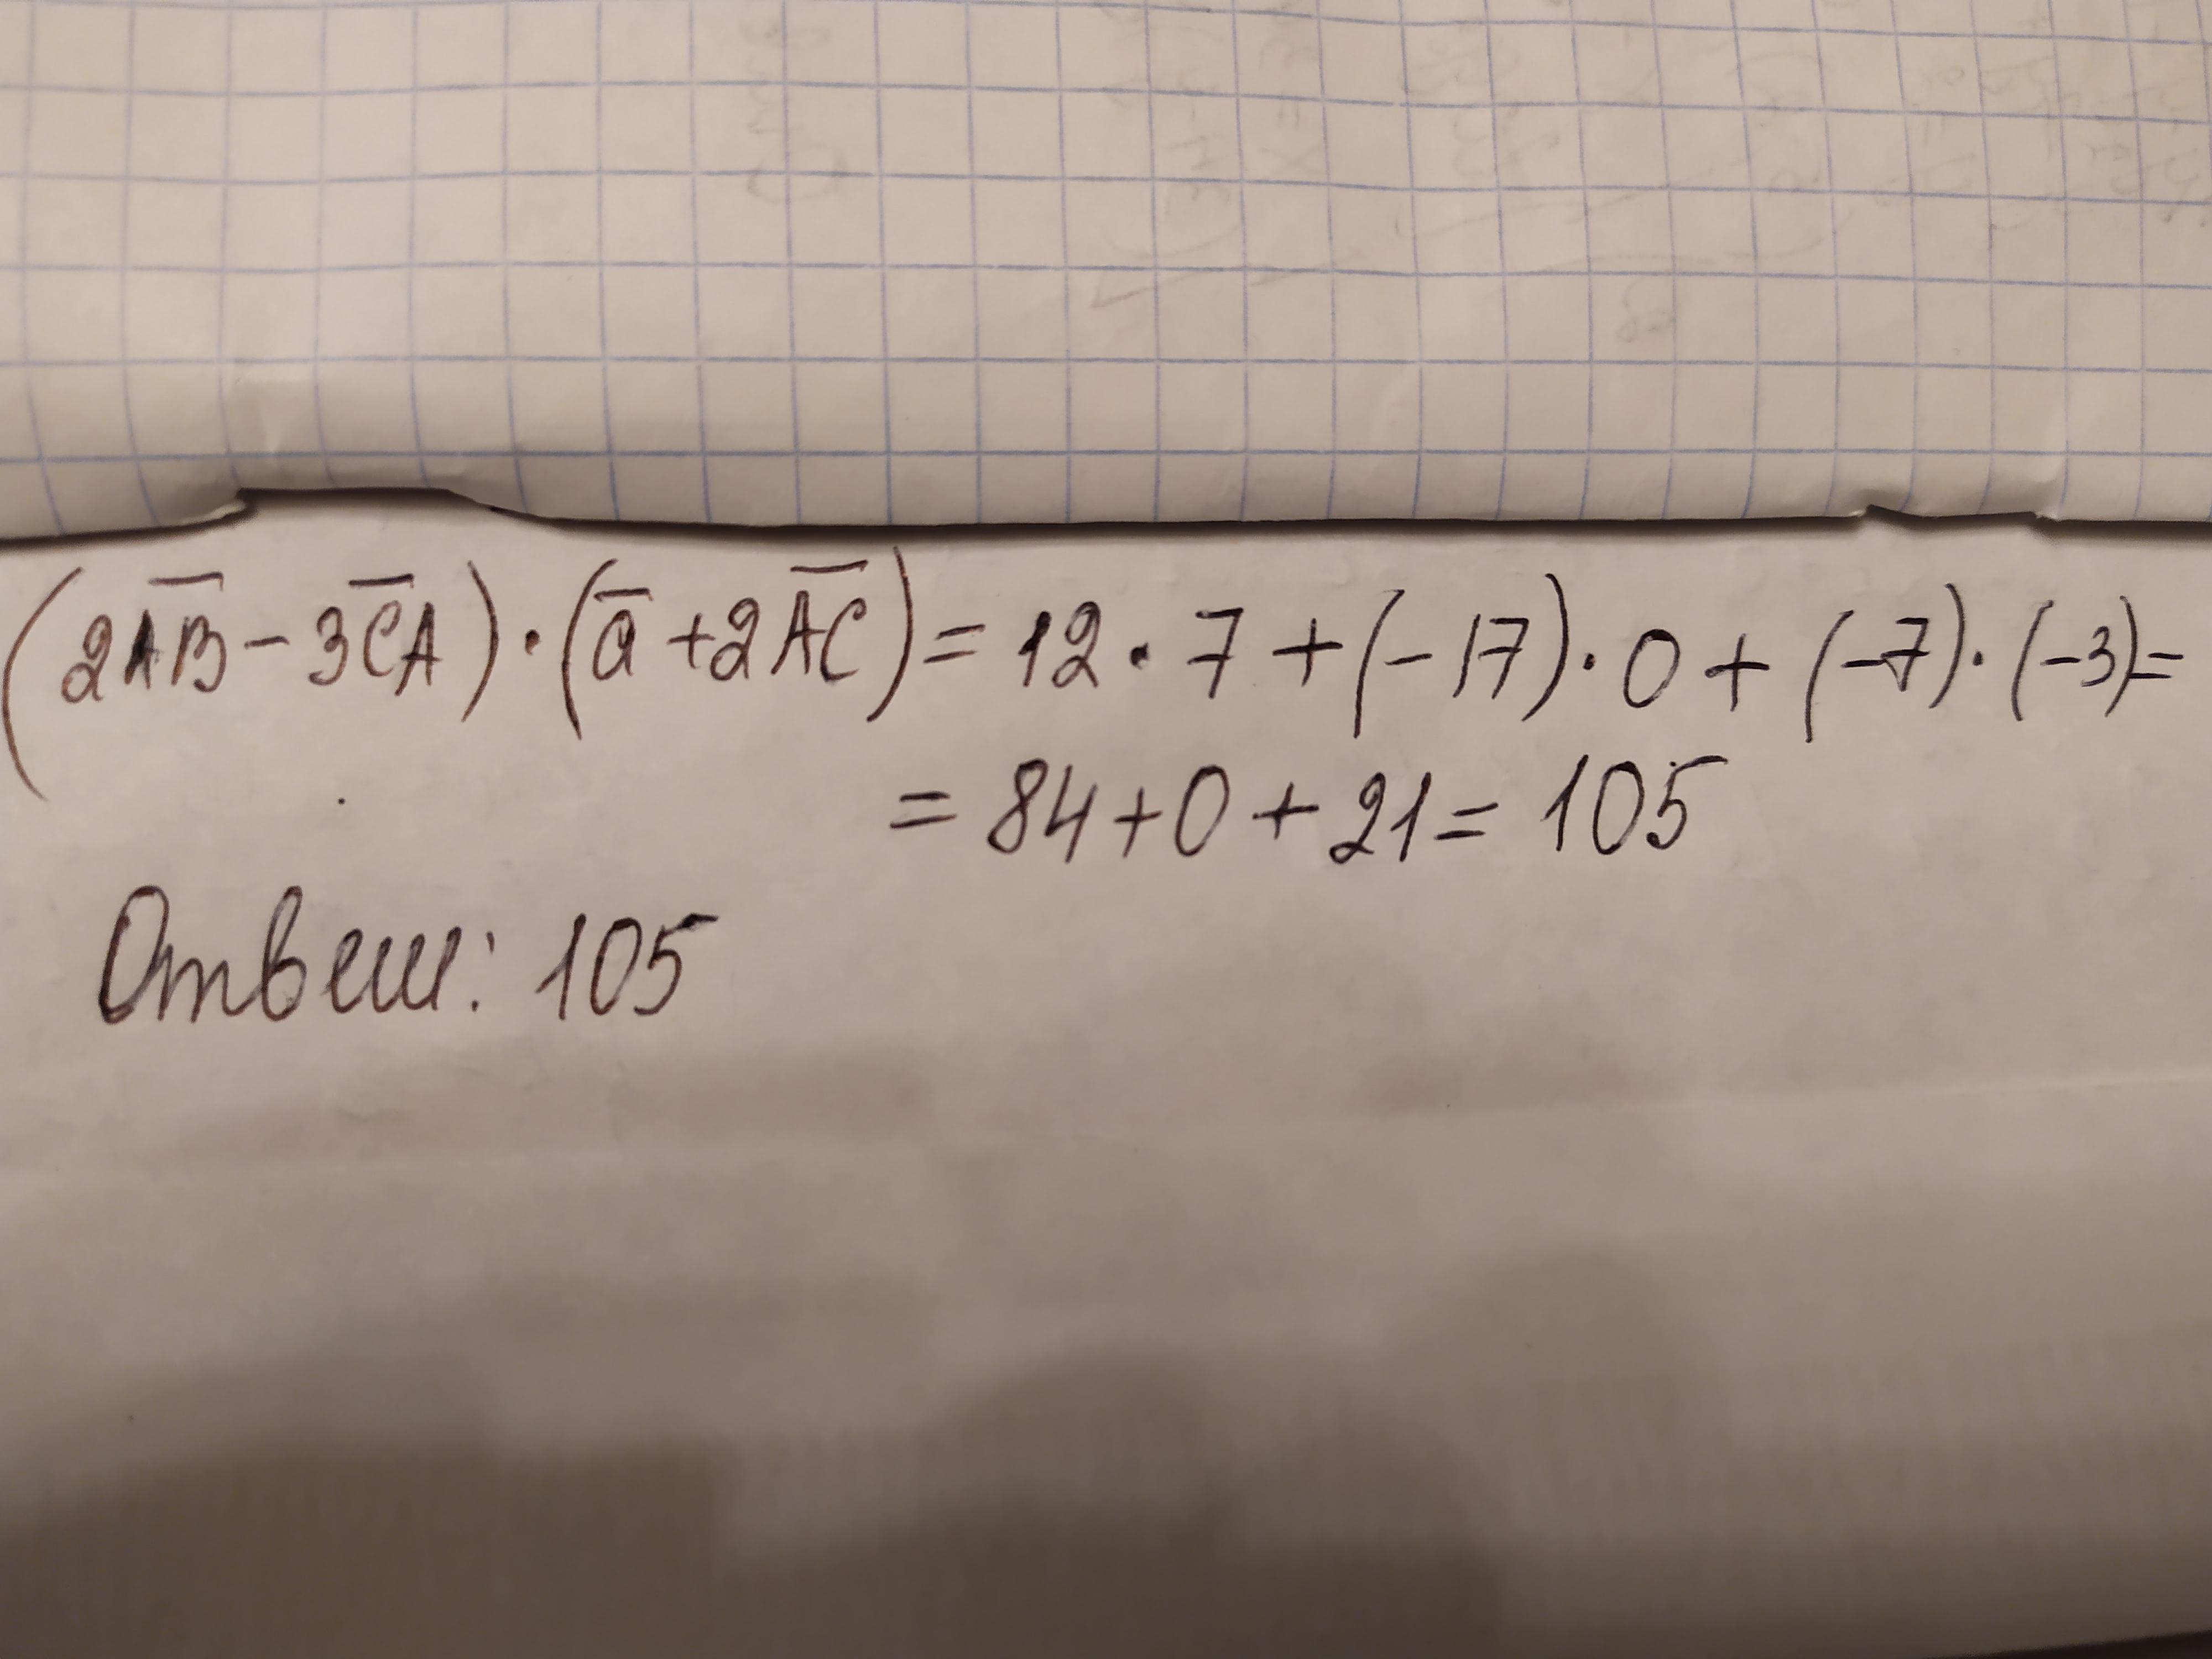 (2A̅B̅ - 3C̅A̅) · (a̅ + 2A̅C̅) = 12 · 7 + (-17) · 0 + (-7) · (-3) =
= 84 + 0 + 21 = 105
Ответ: 105